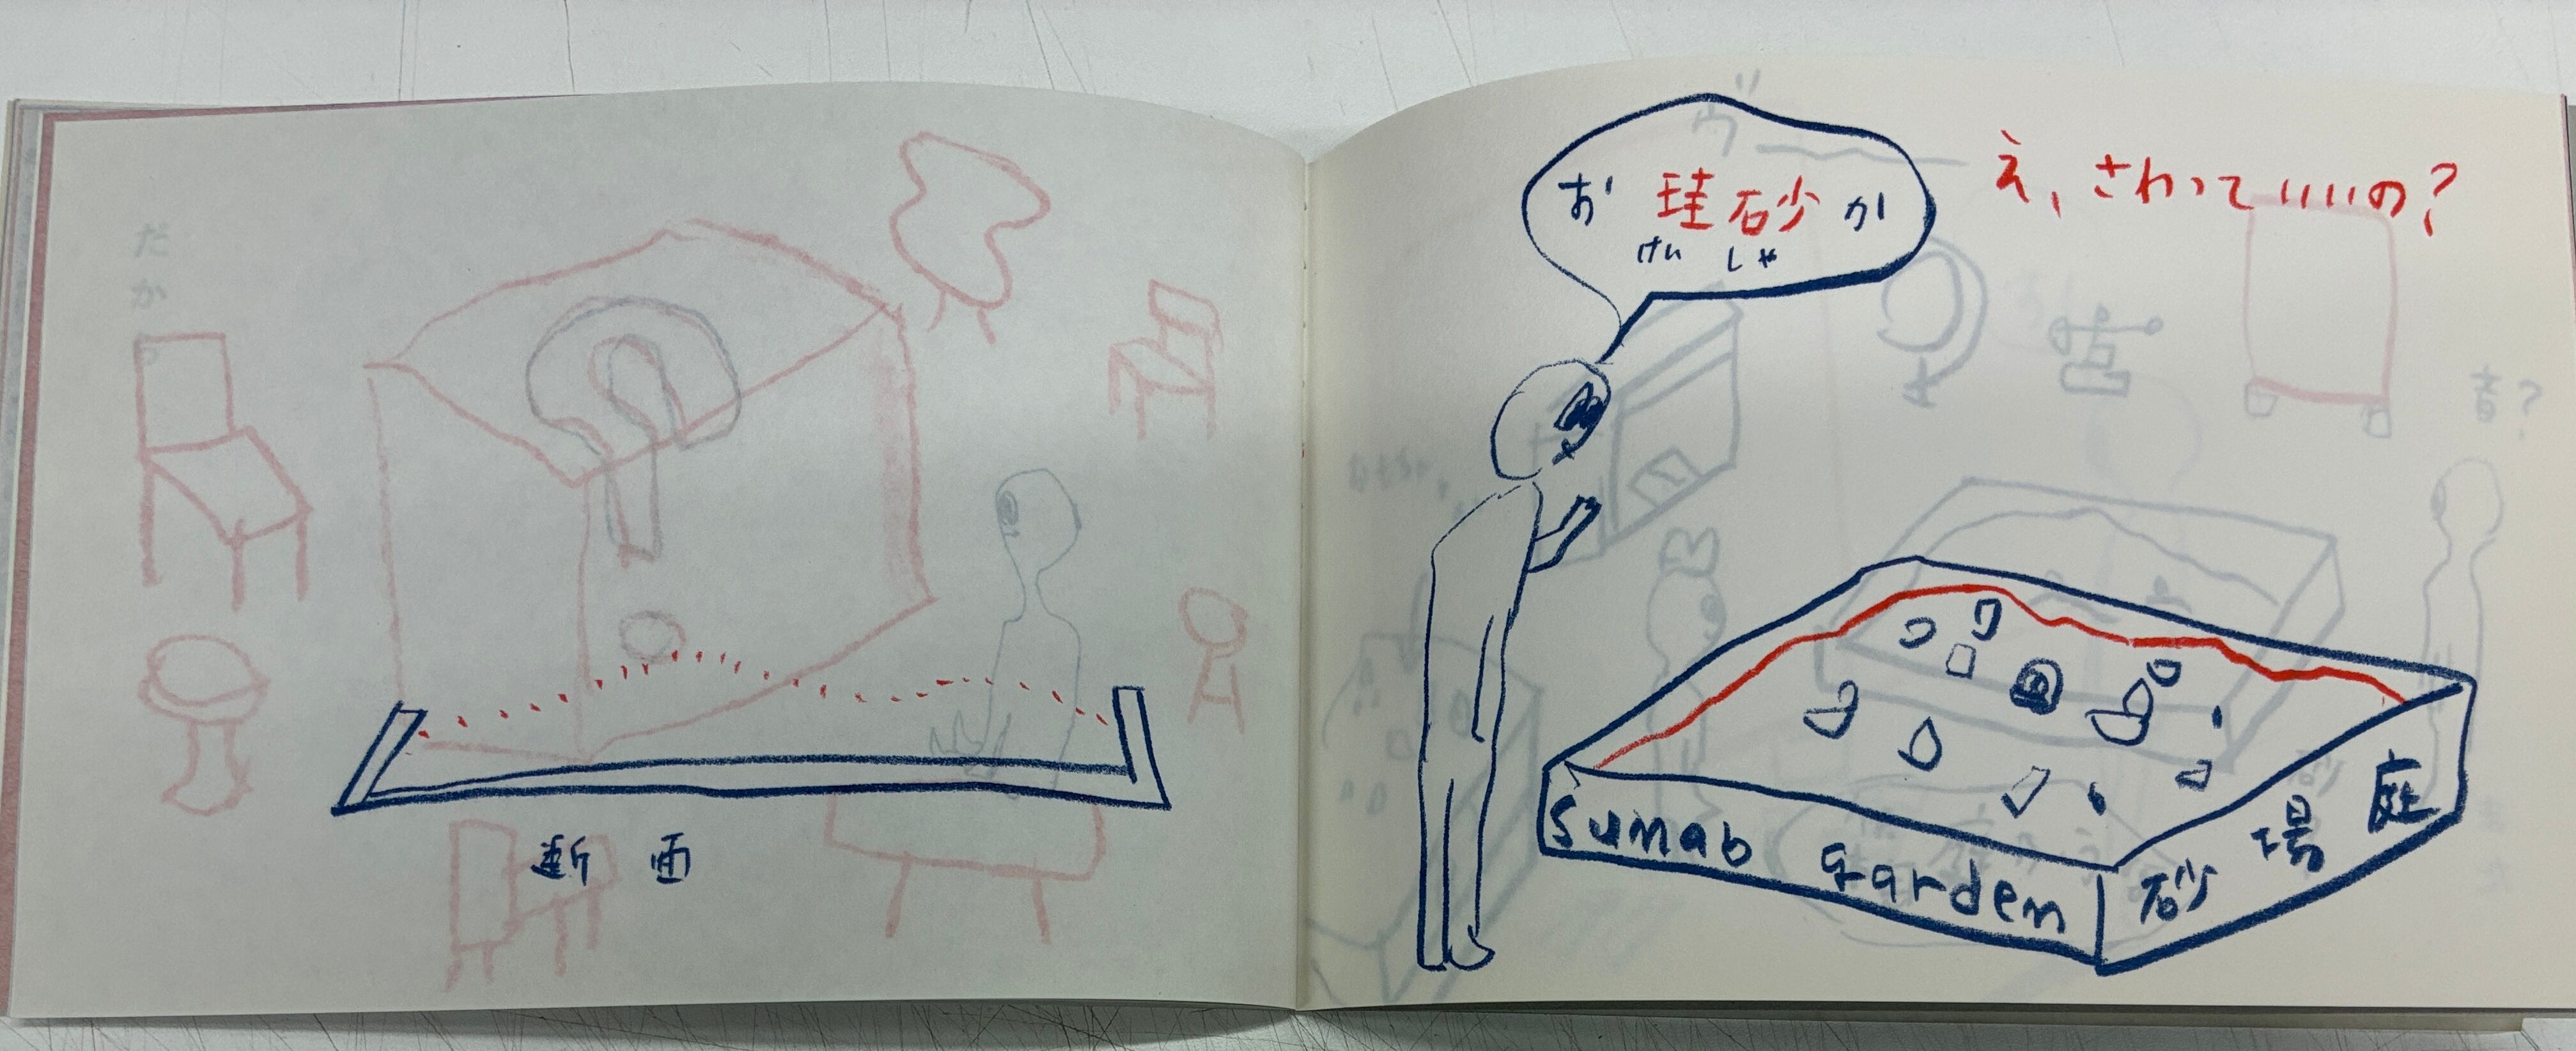 断面
お 珪砂 か
けい しゃ
え、さわっていいの?
sunab garden
砂場庭
だ
か
音?